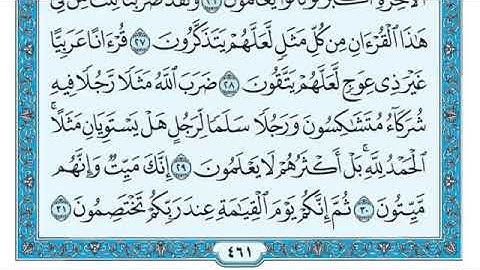 ٱلْءَاخِرَةِ أَكْبَرُ لَوْ كَانُوا۟ يَعْلَمُونَ ٢٦ وَلَقَدْ ضَرَبْنَا لِلنَّاسِ فِى
هَٰذَا ٱلْقُرْءَانِ مِن كُلِّ مَثَلٍ لَّعَلَّهُمْ يَتَذَكَّرُونَ ٢٧ قُرْءَانًا عَرَبِيًّا
غَيْرَ ذِى عِوَجٍ لَّعَلَّهُمْ يَتَّقُونَ ٢٨ ضَرَبَ ٱللَّهُ مَثَلًا رَّجُلًا فِيهِ
شُرَكَآءُ مُتَشَٰكِسُونَ وَرَجُلًا سَلَمًا لِّرَجُلٍ هَلْ يَسْتَوِيَانِ مَثَلًا ۚ
ٱلْحَمْدُ لِلَّهِ ۚ بَلْ أَكْثَرُهُمْ لَا يَعْلَمُونَ ٢٩ إِنَّكَ مَيِّتٌ وَإِنَّهُم
مَّيِّتُونَ ٣٠ ثُمَّ إِنَّكُمْ يَوْمَ ٱلْقِيَٰمَةِ عِندَ رَبِّكُمْ تَخْتَصِمُونَ ٣١
٤٦١